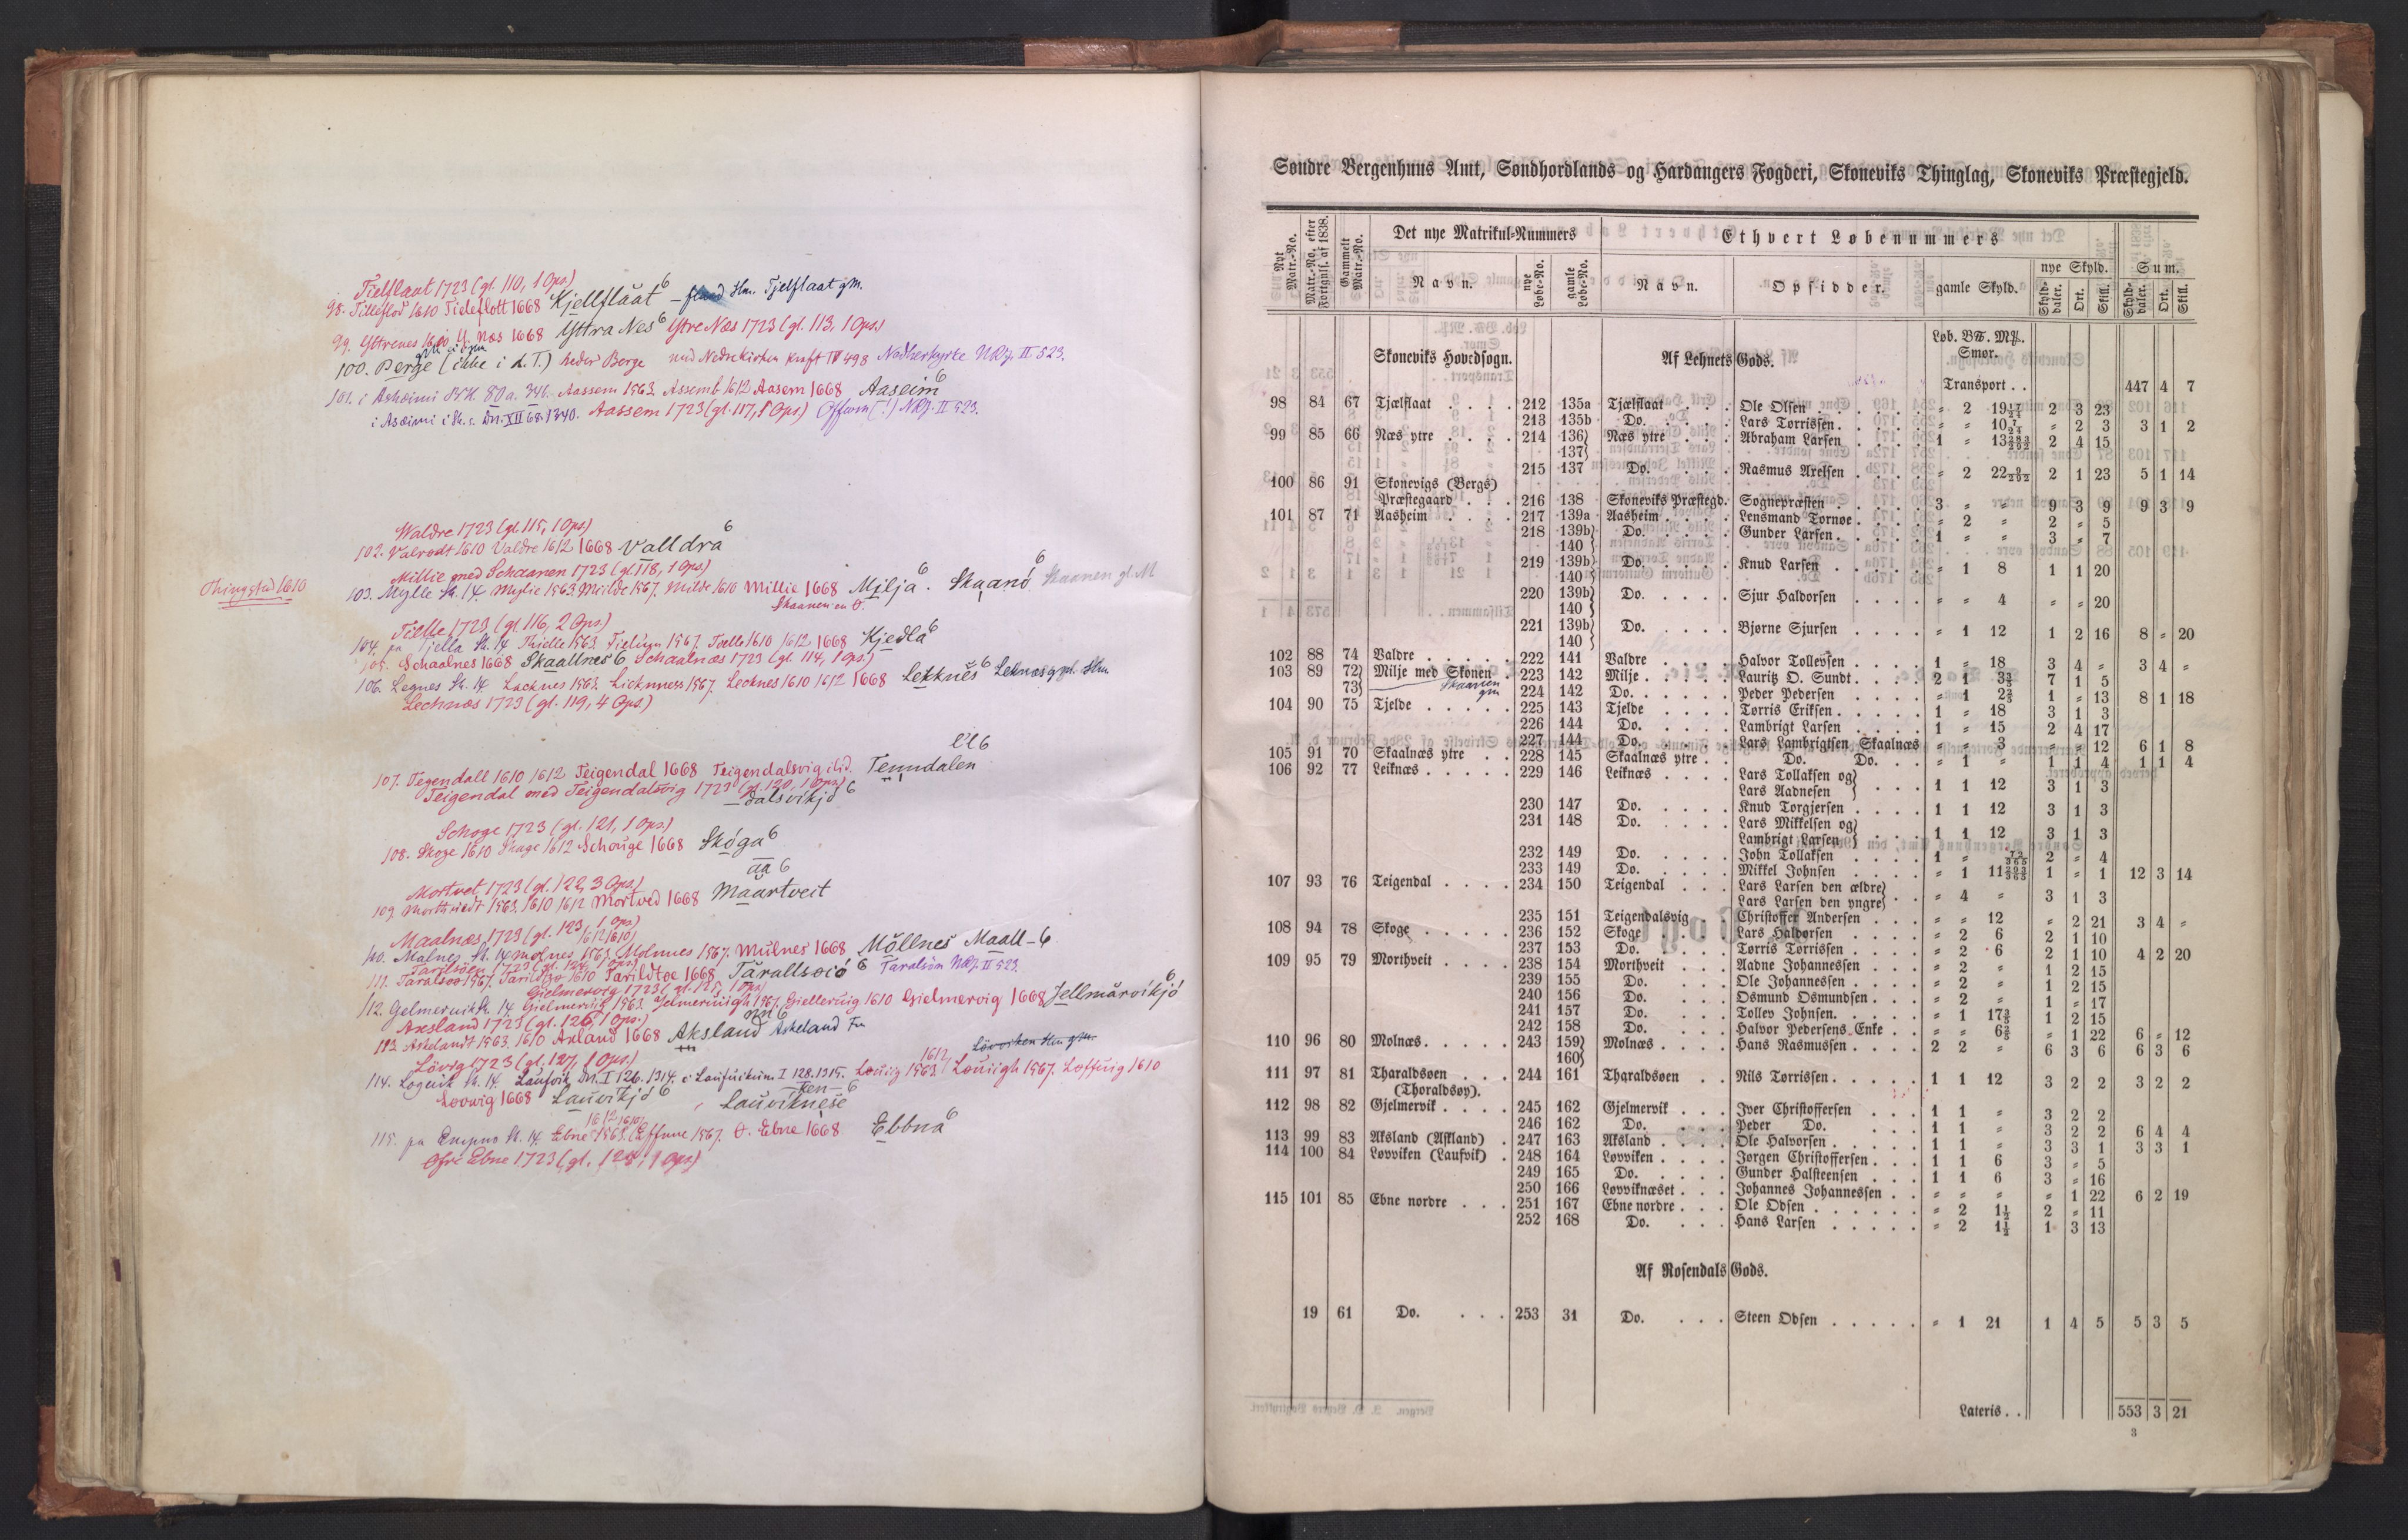 Tielflaat 1723 (gl. 110, 1 Ops)
98. Tilleflod 1610 Tieleflott 1668 Kjellflaat 6 - Hm. Tjelflaat gm.
99. Yttrenes 1610 Y. Næs 1668 Yttra Nes 6 Ytre Næs 1723 (gl. 113, 1 Ops.)
100. Berge (ikke i d. T.) heder Berge med Nedrekirken Kraft IV 498 Nedherkyrke NRJ. II 523.
101. i Askeimi BK. 80a. 346. Aassem 1563. Assemb 1612 Aasem 1668 Aaseim 6
i Asæimi i Sk. s. Dn. XII 68. 1340. Aassem 1723 (gl. 117, 1 Ops) Offwm (!) NRJ. II 523.
Waldre 1723 (gl. 115, 1 Ops)
102. Valrodt 1610 Valdre 1612 1668 Valldra 6
Millie med Schaanen 1723 (gl 118, 1 Ops)
Thingsted 1610
103. Mylle St. 14. Mylie 1563. Meilde 1567. Milde 1610 Millie 1668 Milja 6. Skaanö 6 Skaanen gl. M
Skaanen en O.
Tielle 1723 (gl. 116, 2 Ops)
104. pa Tiella St. 14. Thielle 1563. 1567. Tielle 1610 1612 1668 Kjedla 6
105. Schaalnes 1668 Skaallnes 6 Schaalnæs 1723 (gl. 114, 1 Ops.)
106. Legnes St. 14. Lacknes 1563. Licknness 1567. Lecknes 1610 1612 1668 Lekknes 6 Leknæs gpl. Hm.
Lechnæs 1723 (gl. 119, 4 Ops.)
107. Tegendall 1610 1612 Teigendal 1668 Teigendalsvig ibid. Tenndalen
Teigendal med Teigendalsvig 1723 (gl. 120, 1 Ops.) - dalsvikjo 6
Schoge 1723 (gl. 121, 1 Ops.)
108. Skoge 1610 Skage 1612 Schouge 1668 Skoga 6
aa 6
Mortvet 1723 (gl. 122, 3 Ops.)
109. Morthuedt 1563. 1610 1612 Mortved 1668 Maartveit
Maalnæs 1723 (gl. 123, 1 Ops.)
1612 1610
110. Malnes St. 14 Molnes 1563. Molnnes 1567. Mulnes 1668 Möllnes Maall - 6
Tarilsöen 1723 (gl. 124, 1 Ops.)
111. Taralsøø 1567. 1610 Tarildtøe 1668 Tarallsoio 6 Taralsön NRJ. II 523.
Gielmervig 1723 (gl. 125, 1 Ops)
112. Gelmeruik St. 14 Gielmeruig 1563. Jelmeruiigh 1567. Gielleruig 1610 Gielmervig 1668 Jellmarvikjo 6
Axsland 1723 (gl. 126, 1 Ops.)
113. Askelandt 1563. 1610 Axland 1668 Aksland Askeland Fn
Lövig 1723 (gl. 127, 1 Ops.)
1612 Lövviken Hm gm.
114. Logiuik St. 14. Laufvik Dn. I 126. 1314. i Laufuikum. I 128. 1315. Louiig 1563. Louiigh 1567. Loffuig 1610
Lovwig 1668 Lauvikjo 6 Lauviknese
-ken- 6
1612 1610
115. pa Empno St. 14. Ebne 1563. Effnne 1567. O. Ebne 1668 Ebbna 6
Øfre Ebne 1723 (gl. 128, 1 Ops)
Søndre Bergenhuus Amt, Søndhordlands og Hardangers Fogderi, Skoneviks Thinglag, Skoneviks Præstegjeld.
Nyt Matr.-No. Matr.-No. efter Forigntl. af 1838. Gammelt Matr.-No. Det nye Matrikul-Nummers Ethvert Løbenummers
Navn. nye Løbe-No. gamle Løbe-No. Navn. Opsidder. gamle Skyld. nye Skyld. Sum.
Skylddaler. Ort. Skill. Skylddaler. Ort. Skill.
Løb. B℔. M℔.
Smør.
Skoneviks Hovedsogn. Af Lehnets Gods.
Transport . . 447 4 7
98 84 67 Tjælflaat . . . . 212 135a Tjælflaat . . . Ole Olsen . . . . . . " 2 19 17/24 2 3 23
213 135b Do. . . . . Lars Torrissen . . . . . " " 10 7/24 " 2 3 3 1 2
99 85 66 Næs ytre . . . . 214 136} Næs ytre . . . Abraham Larsen . . . . 1 " 13 283/292 2 4 15
137}
215 137 Do. . . . Rasmus Axelsen . . . . " 2 22 9/292 2 1 23 5 1 14
100 86 91 Skonevigs (Bergs)
Præstegaard . . . 216 138 Skoneviks Præstegd. Sognepræsten . . . . . 3 " " 9 3 9 9 3 9
101 87 71 Aasheim . . . . 217 139a Aasheim . . . . Lensmand Tornøe . . . . " 2 " 2 " 5
218 139b} Do. . . . . Gunder Larsen . . . . . 1 " " 3 " 7
140}
219 139b} Do. . . . . Knud Larsen . . . . . " 1 8 1 1 20
140}
220 139b} Do. . . . . Sjur Haldorsen . . . . " " 4 " " 20
140}
221 139b} Do. . . . . Bjørne Sjursen . . . . " 1 12 1 2 16 8 " 20
140}
102 88 74 Valdre . . . . . 222 141 Valdre . . . . Halvor Tollevsen . . . . 1 " 18 3 4 " 3 4 "
103 89 72} Milje med Skonen . 223 142 Milje . . . . . Lauritz O. Sundt . . . . 2 1 3 3/5 7 1 5
73} Skaanen gm 224 142 Do. . . . . . Peder Pedersen . . . . " 1 2 2/5 1 " 13 8 1 18
104 90 75 Tjelde . . . . . 225 143 Tjelde . . . . Torris Eriksen . . . . . 1 " 18 3 1 3
226 144 Do. . . . . Lambrigt Larsen . . . . 1 " 15 2 4 17
227 144 Do. . . . . Lars Lambrigtsen Skaalnæs " " 3 " " 12 6 1 8
105 91 70 Skaalnæs ytre . . 228 145 Skaalnæs ytre . . Do. Do. . . " 1 " 1 1 4 1 1 4
106 92 77 Leiknæs . . . . . 229 146 Leiknæs . . . . Lars Tollaksen og}
Lars Aadnesen } . . . 1 1 12 3 1 3
230 147 Do. . . . . Knud Torgjersen . . . . 1 1 12 3 1 3
231 148 Do. . . . . Lars Mikkelsen og}
Lambrigt Larsen } . . . 1 1 12 3 1 3
232 149 Do. . . . . John Tollaksen . . . . 1 " 72/365 2 " 4
233 149 Do. . . . . Mikkel Johnsen . . . . " 1 11 293/365 1 " 1 12 3 14
107 93 76 Teigendal . . . . 234 150 Teigendal . . . Lars Larsen den ældre}
Lars Larsen den yngre} . . " 4 " 3 1 3
235 151 Teigendalsvig . . Christoffer Andersen . . . " " 12 " 2 21 3 4 "
108 94 78 Skoge . . . . . 236 152 Skoge . . . . Lars Haldorsen . . . . " 2 6 2 1 10
237 153 Do. . . . . Torris Torrissen . . . . " 2 6 2 1 10 4 2 20
109 95 79 Morthveit . . . . 238 154 Morthveit . . . Aadne Johannessen . . . " 2 " 1 2 15
239 155 Do. . . . Ole Johannessen . . . . " 2 " 1 2 15
240 156 Do. . . . Osmund Osmundsen . . . " 2 " 1 " 17
241 157 Do. . . . Tollev Johnsen . . . . . " 1 17 3/5 1 2 15
242 158 Do. . . . Halvor Pedersens Enke . . " " 6 2/5 " 1 22 6 " 12
110 96 80 Molnæs . . . . . 243 159} Molnæs . . . . Hans Rasmussen . . . . 2 2 " 6 3 6 6 3 6
160}
111 97 81 Tharaldsøen . . . 244 161 Tharaldsøen . . Nils Torrissen . . . . . 1 1 12 3 2 2 3 2 2
(Thoraldsøy).
112 98 82 Gjelmervik . . . . 245 162 Gjelmervik . . . Iver Christoffersen . . . 1 1 " 3 2 2
246 162 Do. . . . Peder Do. . . . 1 1 " 3 2 2 6 4 4
113 99 83 Aksland (Askland) . 247 163 Aksland . . . . Ole Halvorsen . . . . . 1 1 " 3 3 1 3 3 1
114 100 84 Løvviken (Laufvik) . 248 164 Løvviken . . . . Jørgen Christoffersen . . . 1 1 6 3 " 5
249 165 Do. . . . . Gunder Halsteensen . . . 1 1 6 3 " 16
250 166 Løvviknæset . . . Johannes Johannessen . . " " " " 1 22 6 2 19
115 101 85 Ebne nordre . . . 251 167 Ebne nordre . . . Ole Odsen . . . . . . " 2 1 1/2 2 " 11
252 168 Do. . . . Hans Larsen . . . . . " 2 1 1/2 1 3 13
Af Rosendals Gods.
19 61 Do. . . . 253 31 Do. . . . Steen Odsen . . . . . " 1 21 1 4 5 5 3 5
Lateris . . 553 3 21
3